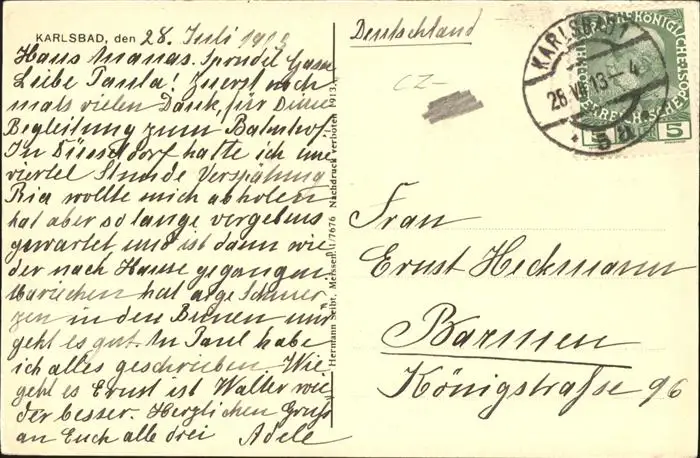 KARLSBAD, den 28. Juli 1913
Haus Ananas. Sprudel Gasse
Liebe Paula! Zuerst noch
mals vielen Dank, für Deine
Begleitung zum Bahnhof.
In Düsseldorf hatte ich eine
viertel Stunde Verspätung
Ria wollte mich abholen
hat aber so lange vergebens
gewartet und ist dann wie
der nach Hause gegangen.
Mariechen hat arge Schmer
zen in den Beinen mir
geht es gut. An Paul habe
ich alles geschrieben. Wie
geht es Ernst ist Walter wie
der besser. Herzlichen Gruß
an Euch alle drei Adele
Hermann Seibt, Meissen. 1/7676 Nachdruck verboten 1913.
Deutschland
CZ-
KARLSBAD 1
28 VII 13 - 4
* 5a
5 5
Frau
Ernst Heckmann
Barmen
Königstraße 96